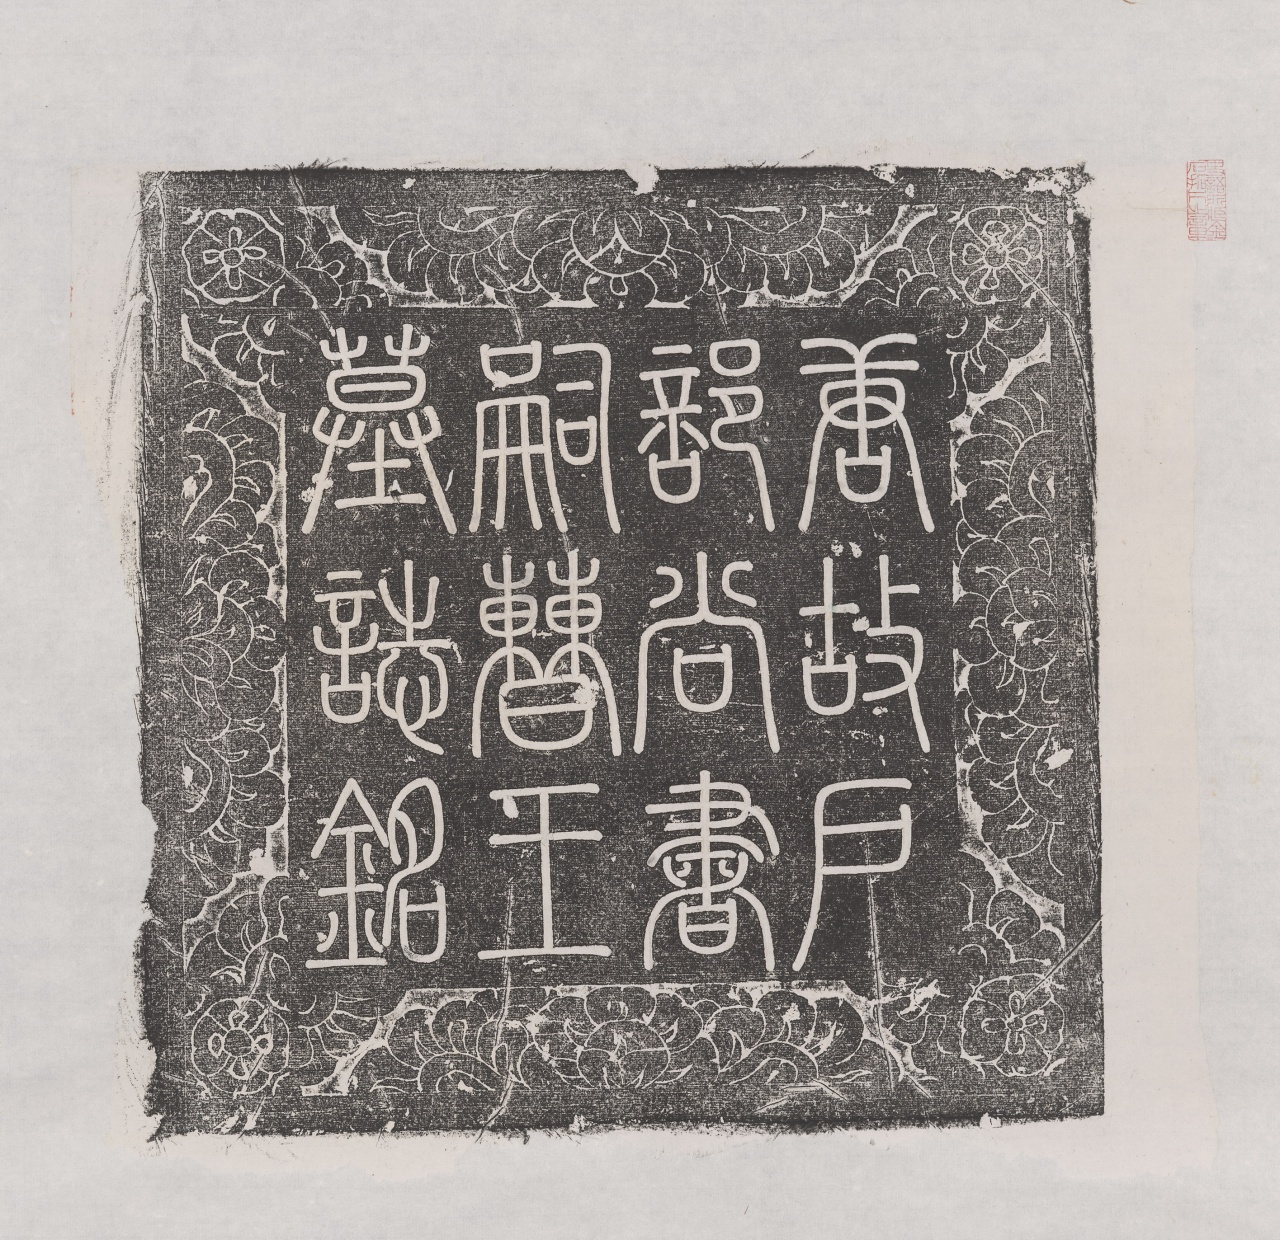 唐故户
部尚書
嗣曹王
墓誌銘